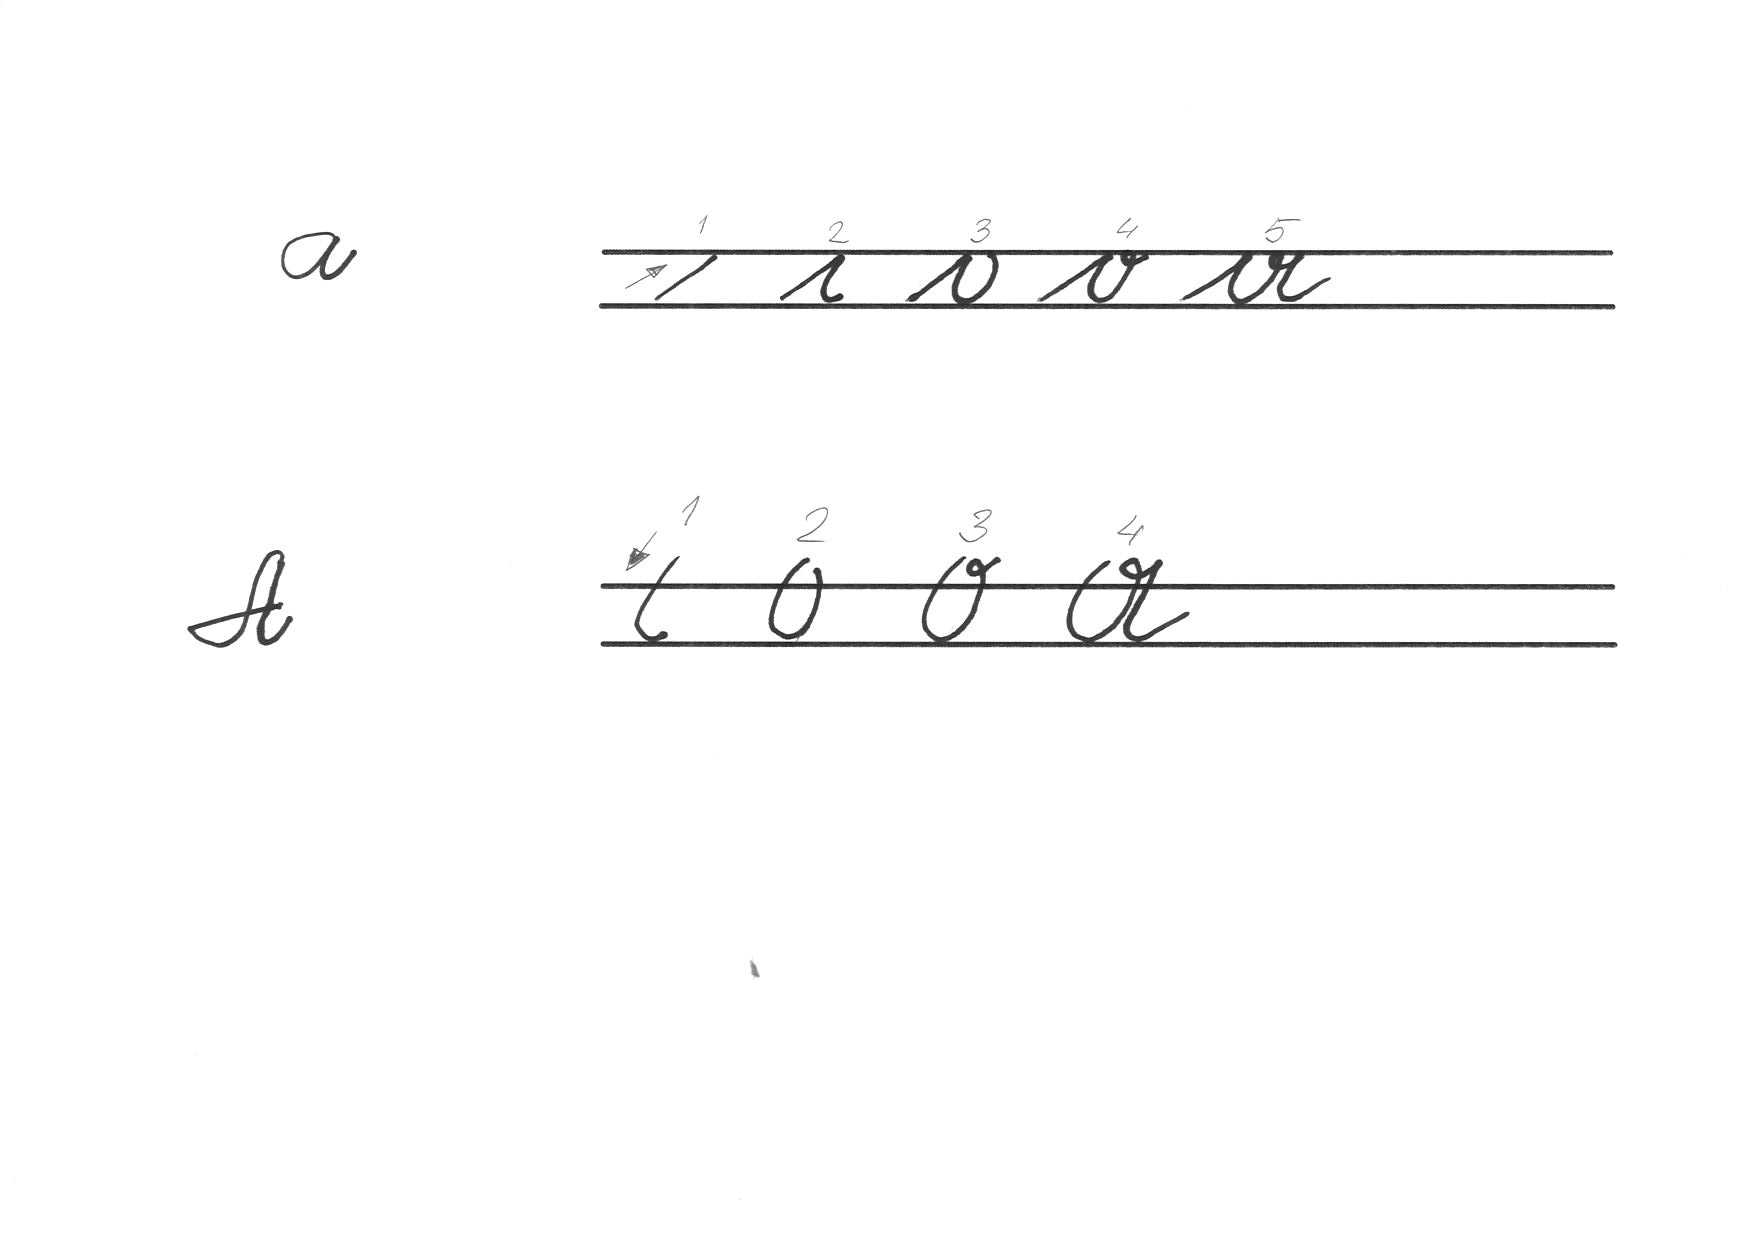 1 2 3 4 5
a
1 2 3 4
A